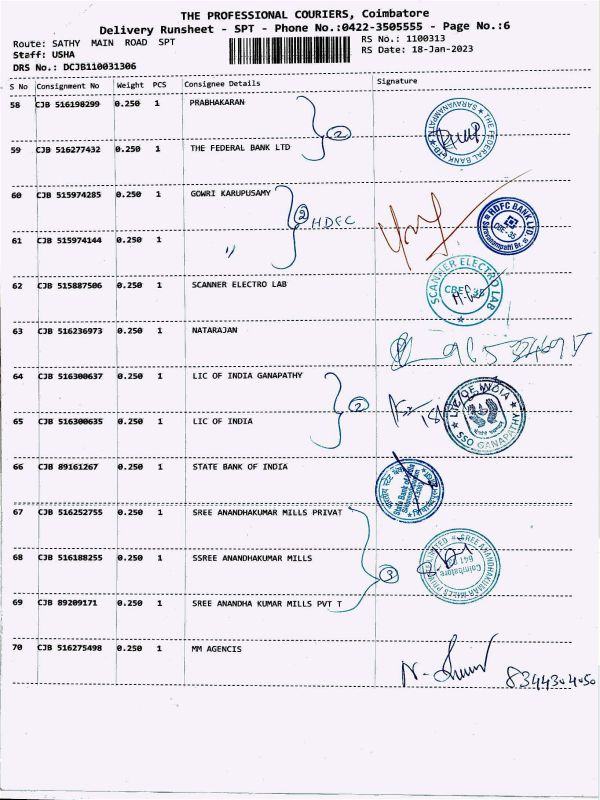 THE PROFESSIONAL COURIERS, Coimbatore
Delivery Runsheet - SPT - Phone No.:0422-3505555 - Page No.:6
Route: SATHY MAIN ROAD SPT
RS No.: 1100313
Staff: USHA
RS Date: 18-Jan-2023
DRS No.: DCJB110031306
S No Consignment No Weight PCS Consignee Details Signature
58 CJB 516198299 0.250 1 PRABHAKARAN
2
THE FEDERAL BANK LTD
SARAVANAMPATTI
59 CJB 516277432 0.250 1 THE FEDERAL BANK LTD
60 CJB 515974285 0.250 1 GOWRI KARUPUSAMY
2 HDFC
HDFC BANK LTD.
CBE-35
Saravanampatti Br.
61 CJB 515974144 0.250 1 "
62 CJB 515887506 0.250 1 SCANNER ELECTRO LAB
SCANNER ELECTRO LAB
CBE-35
63 CJB 516236973 0.250 1 NATARAJAN
64 CJB 516300637 0.250 1 LIC OF INDIA GANAPATHY
2
LIC OF INDIA
SSO GANAPATHY
65 CJB 516300635 0.250 1 LIC OF INDIA
66 CJB 89161267 0.250 1 STATE BANK OF INDIA
State Bank of India
67 CJB 516252755 0.250 1 SREE ANANDHAKUMAR MILLS PRIVAT
68 CJB 516188255 0.250 1 SSREE ANANDHAKUMAR MILLS
3
SREE ANANDHAKUMAR MILLS PRIVATE LIMITED
Coimbatore
69 CJB 89209171 0.250 1 SREE ANANDHA KUMAR MILLS PVT T
70 CJB 516275498 0.250 1 MM AGENCIS
8344304050